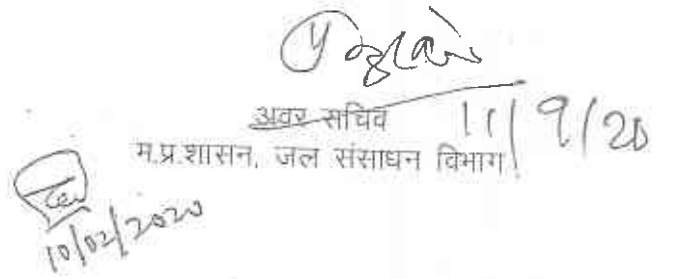 अवर सचिव
11/9/20
म.प्र.शासन, जल संसाधन विभाग
10/02/2020